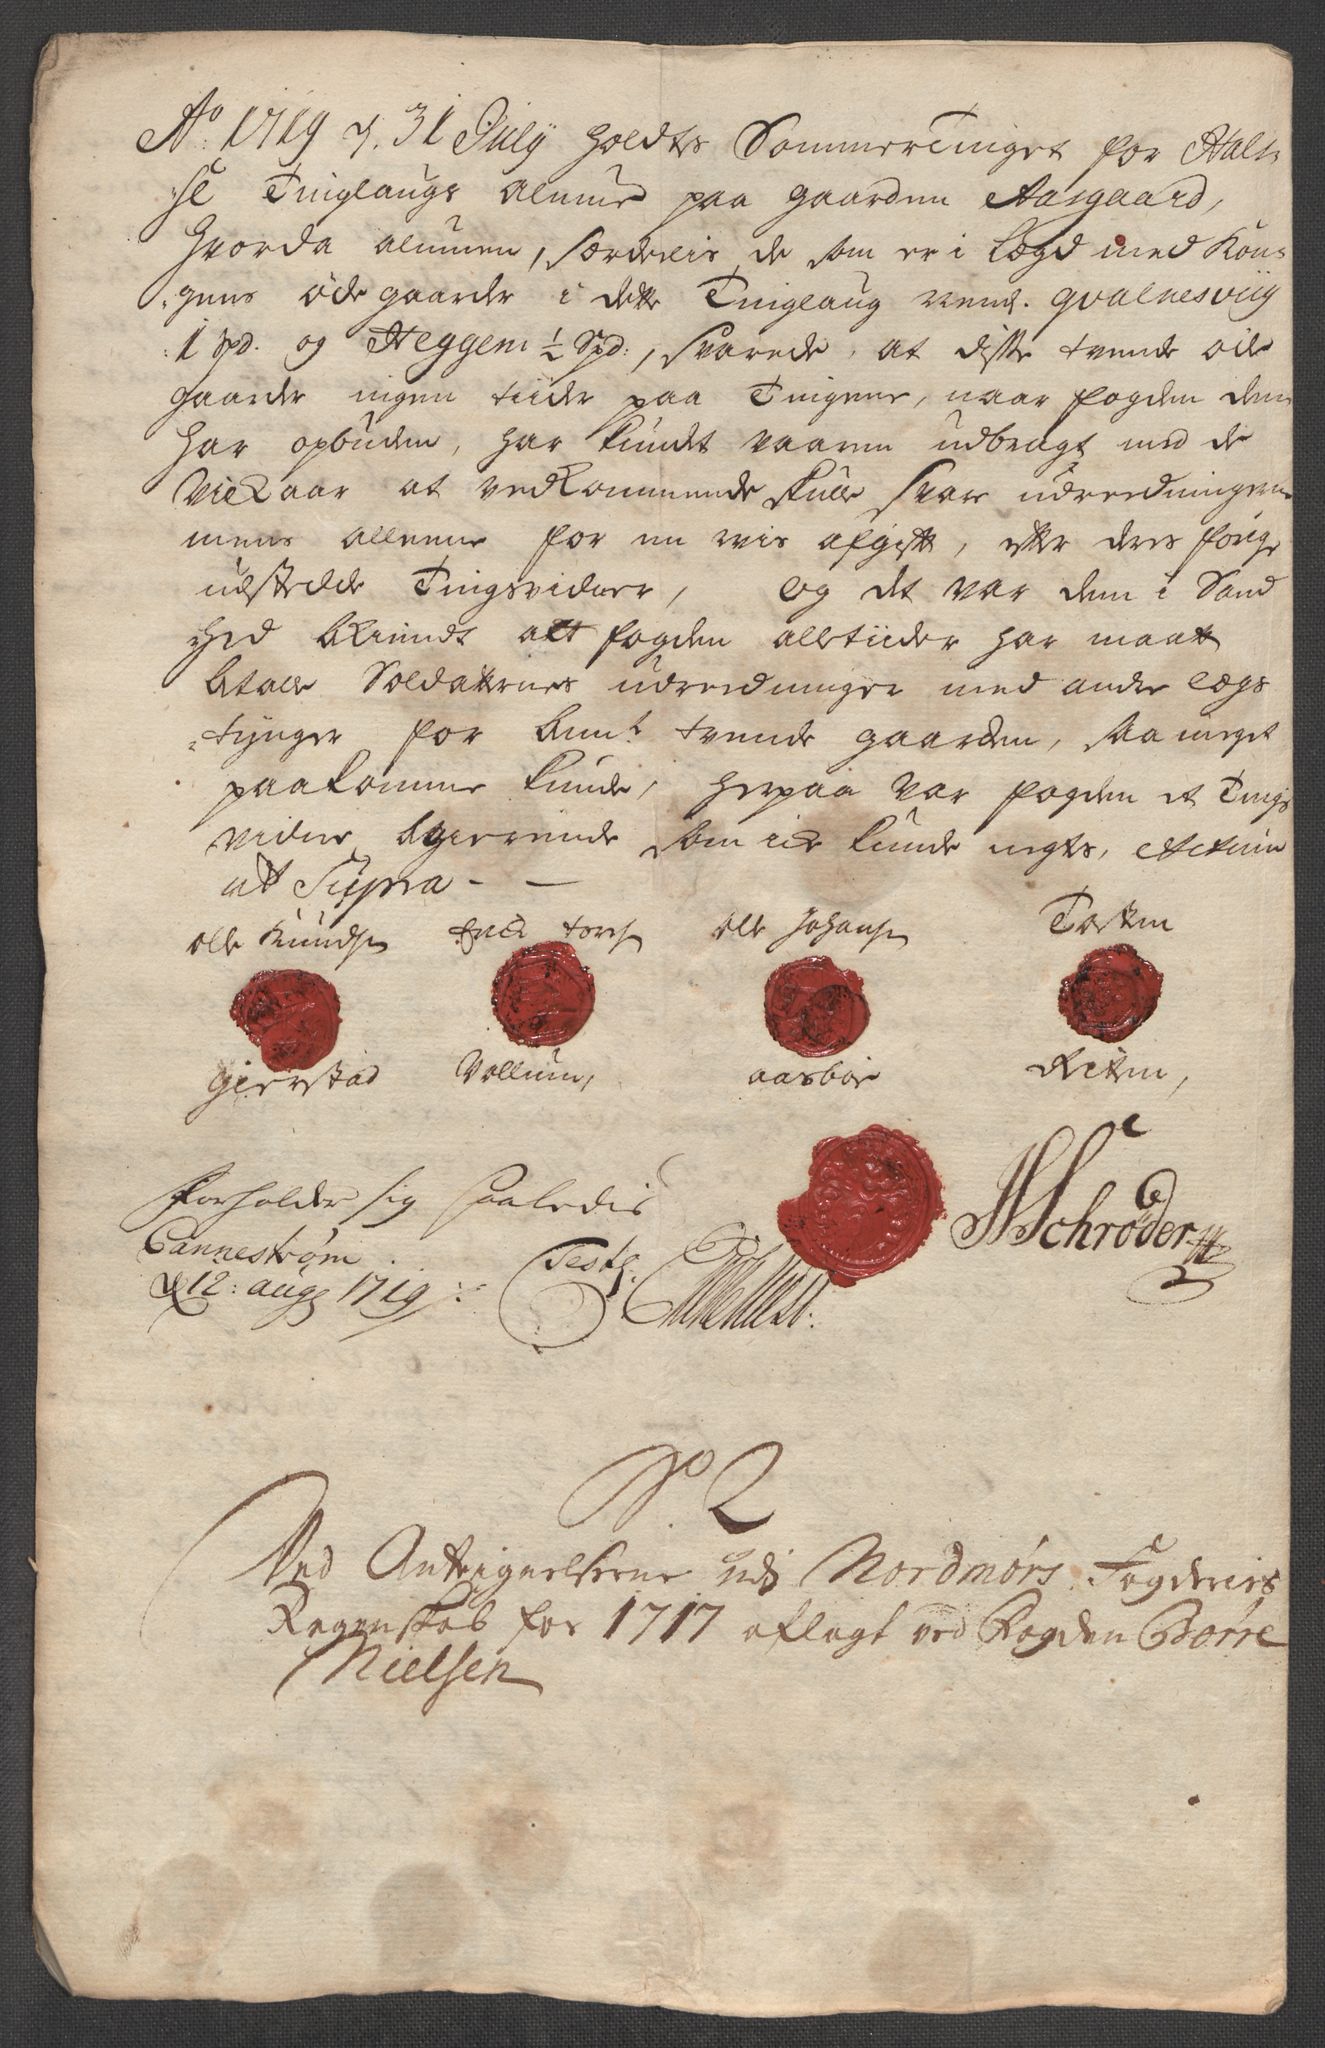 Ao. 1719 d. 31 July holdtes Sommertinget for Hals-
:se Tinglaugs almue paa gaarden Aasgaard,
hvorda almuen, særdelis de som er i lægd med Kon-
:gens öde gaarder i dette Tinglaug nemb. Qvalnesviig
:1 spd. og Heggem ½ Spd:, svarede, at diste tvende öde
gaarder ingen tiider paa Tingene, naar fogden dem
har opbuden, har kundet vaaren udbragt med de
Vilkaar at vedkommende skulle svare udreedningerne
mens alleene for en vis afgift, efter deres forrige
udstedde Tingsvidner, og det var dem i Sand
hed bekiendt att fogden alletiider har maatt
betale Soldatternes udreedninger med andre lægs
-tynger for bemt. tvende gaarder, saa meget
paakomme kunde, herpaa var fogden et Tings
vidne begierende som icke kunde negtes, Actum
ut Supra - -
olle Knudsen Erick Toresen olle Johansen Tosten
gierstad Vollum, aasböe Reiten,
Forholder sig saaledis
Canneström
d 12: aug 1719 Test. HSchrøder
No 2
Ved Antegnelserne udj Nordmørs Fogderies
Regenskab for 1717 aflagt ved Fogden Børre
Nielsen